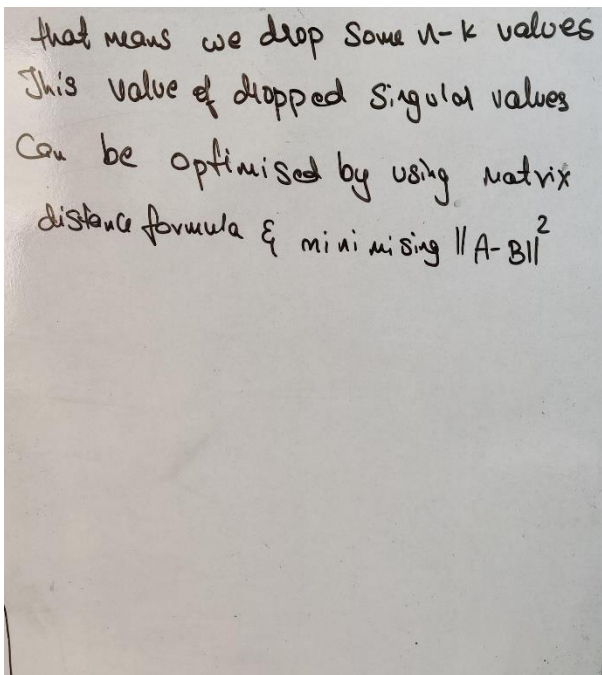 that means we drop some n-k values
This value of dropped singular values
Can be optimised by using matrix
distance formula & minimising ||A-B||²